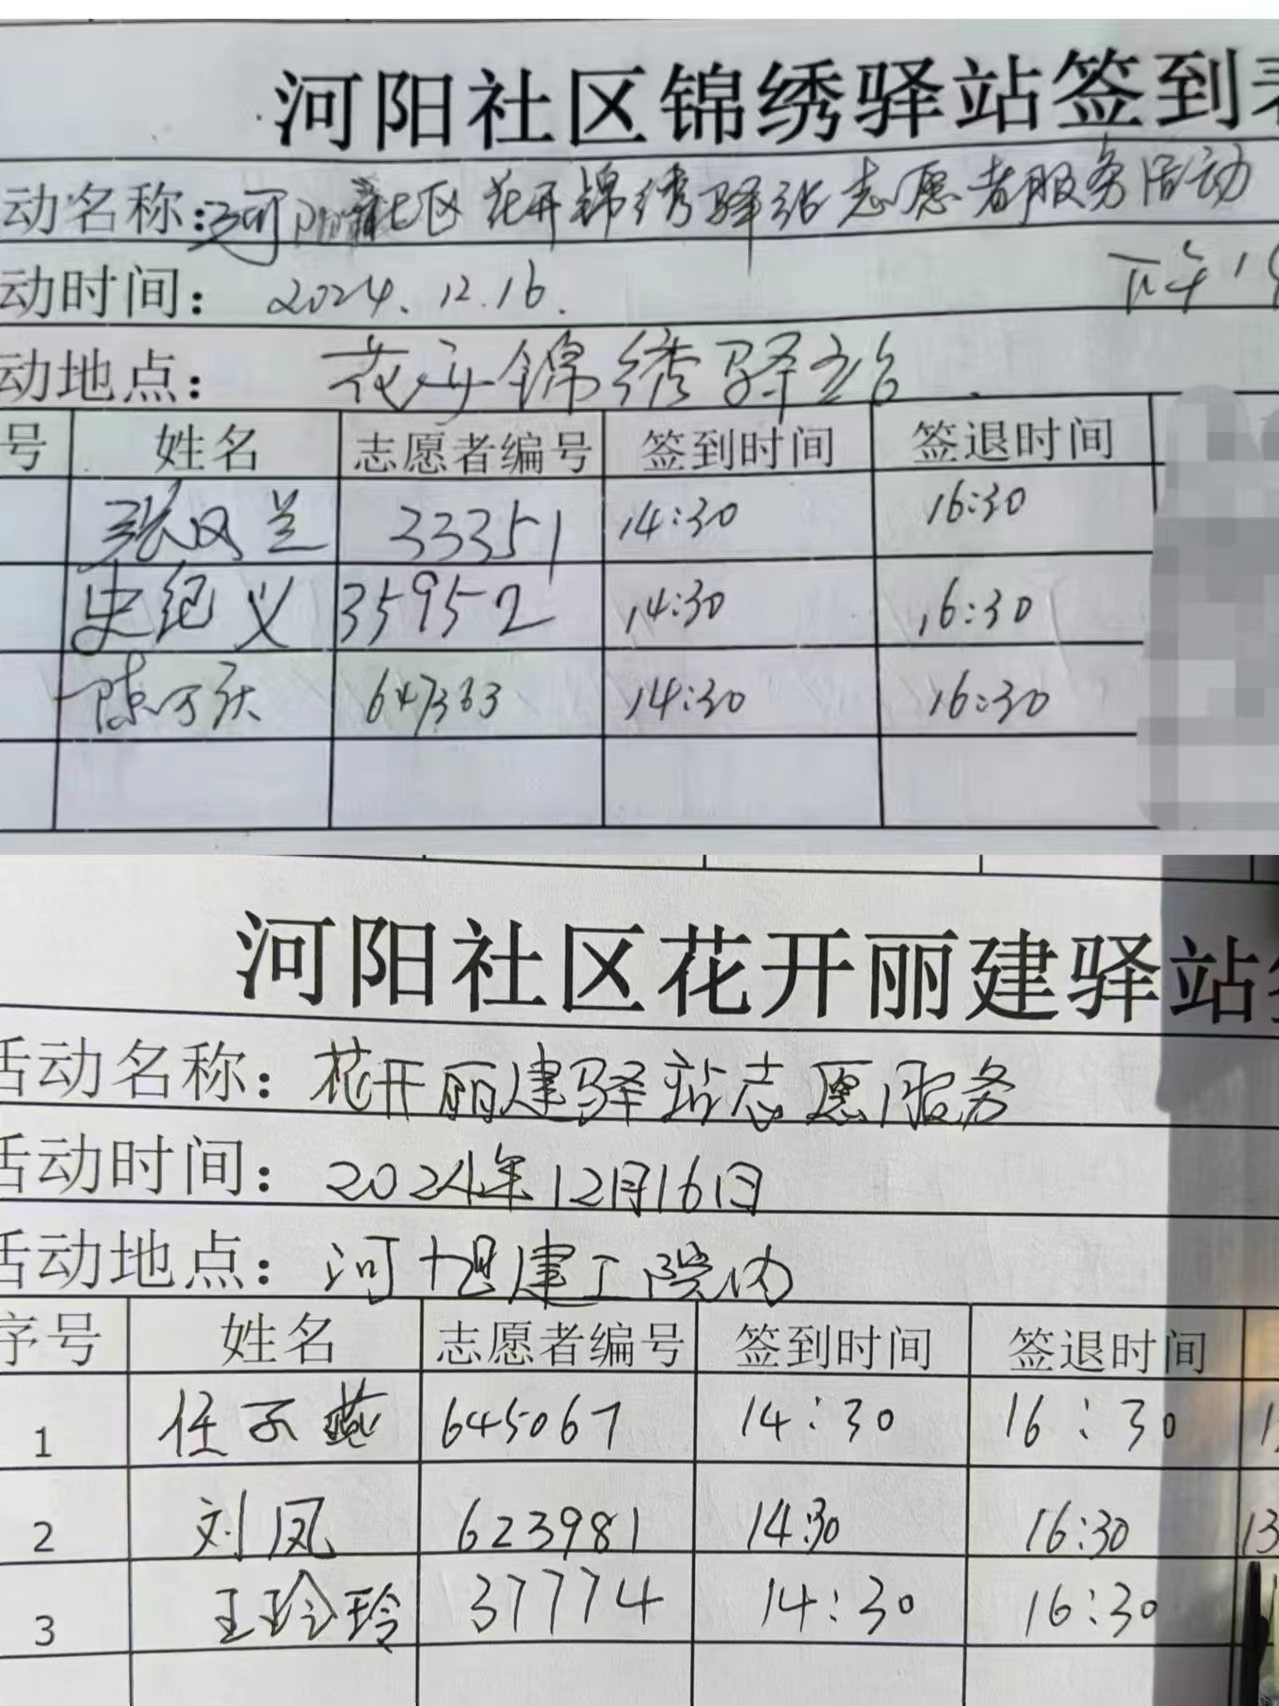 河阳社区锦绣驿站签到表
动名称:河阳社区花开锦绣驿站志愿者服务活动
动时间: 2024.12.16. 下午
动地点: 花开锦绣驿站
号 姓名 志愿者编号 签到时间 签退时间
张凤兰 33351 14:30 16:30
史纪义 35952 14:30 16:30
陈 647363 14:30 16:30
河阳社区花开丽建驿站
活动名称: 花开丽建驿站志愿服务
活动时间: 2024年12月16日
活动地点: 河阳建工院内
序号 姓名 志愿者编号 签到时间 签退时间
1 任子燕 645067 14:30 16:30
2 刘凤 623981 14:30 16:30 13
3 王玲玲 37774 14:30 16:30